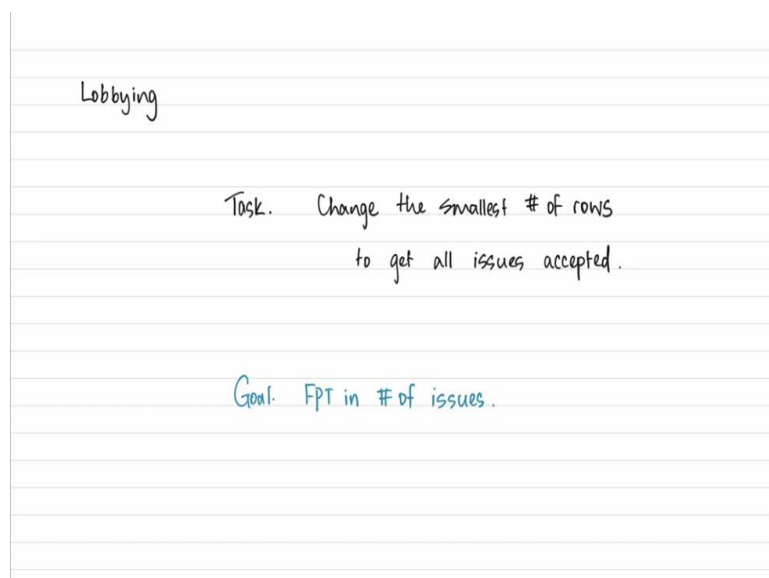 Lobbying
Task. Change the smallest # of rows
to get all issues accepted.
Goal. FPT in # of issues.